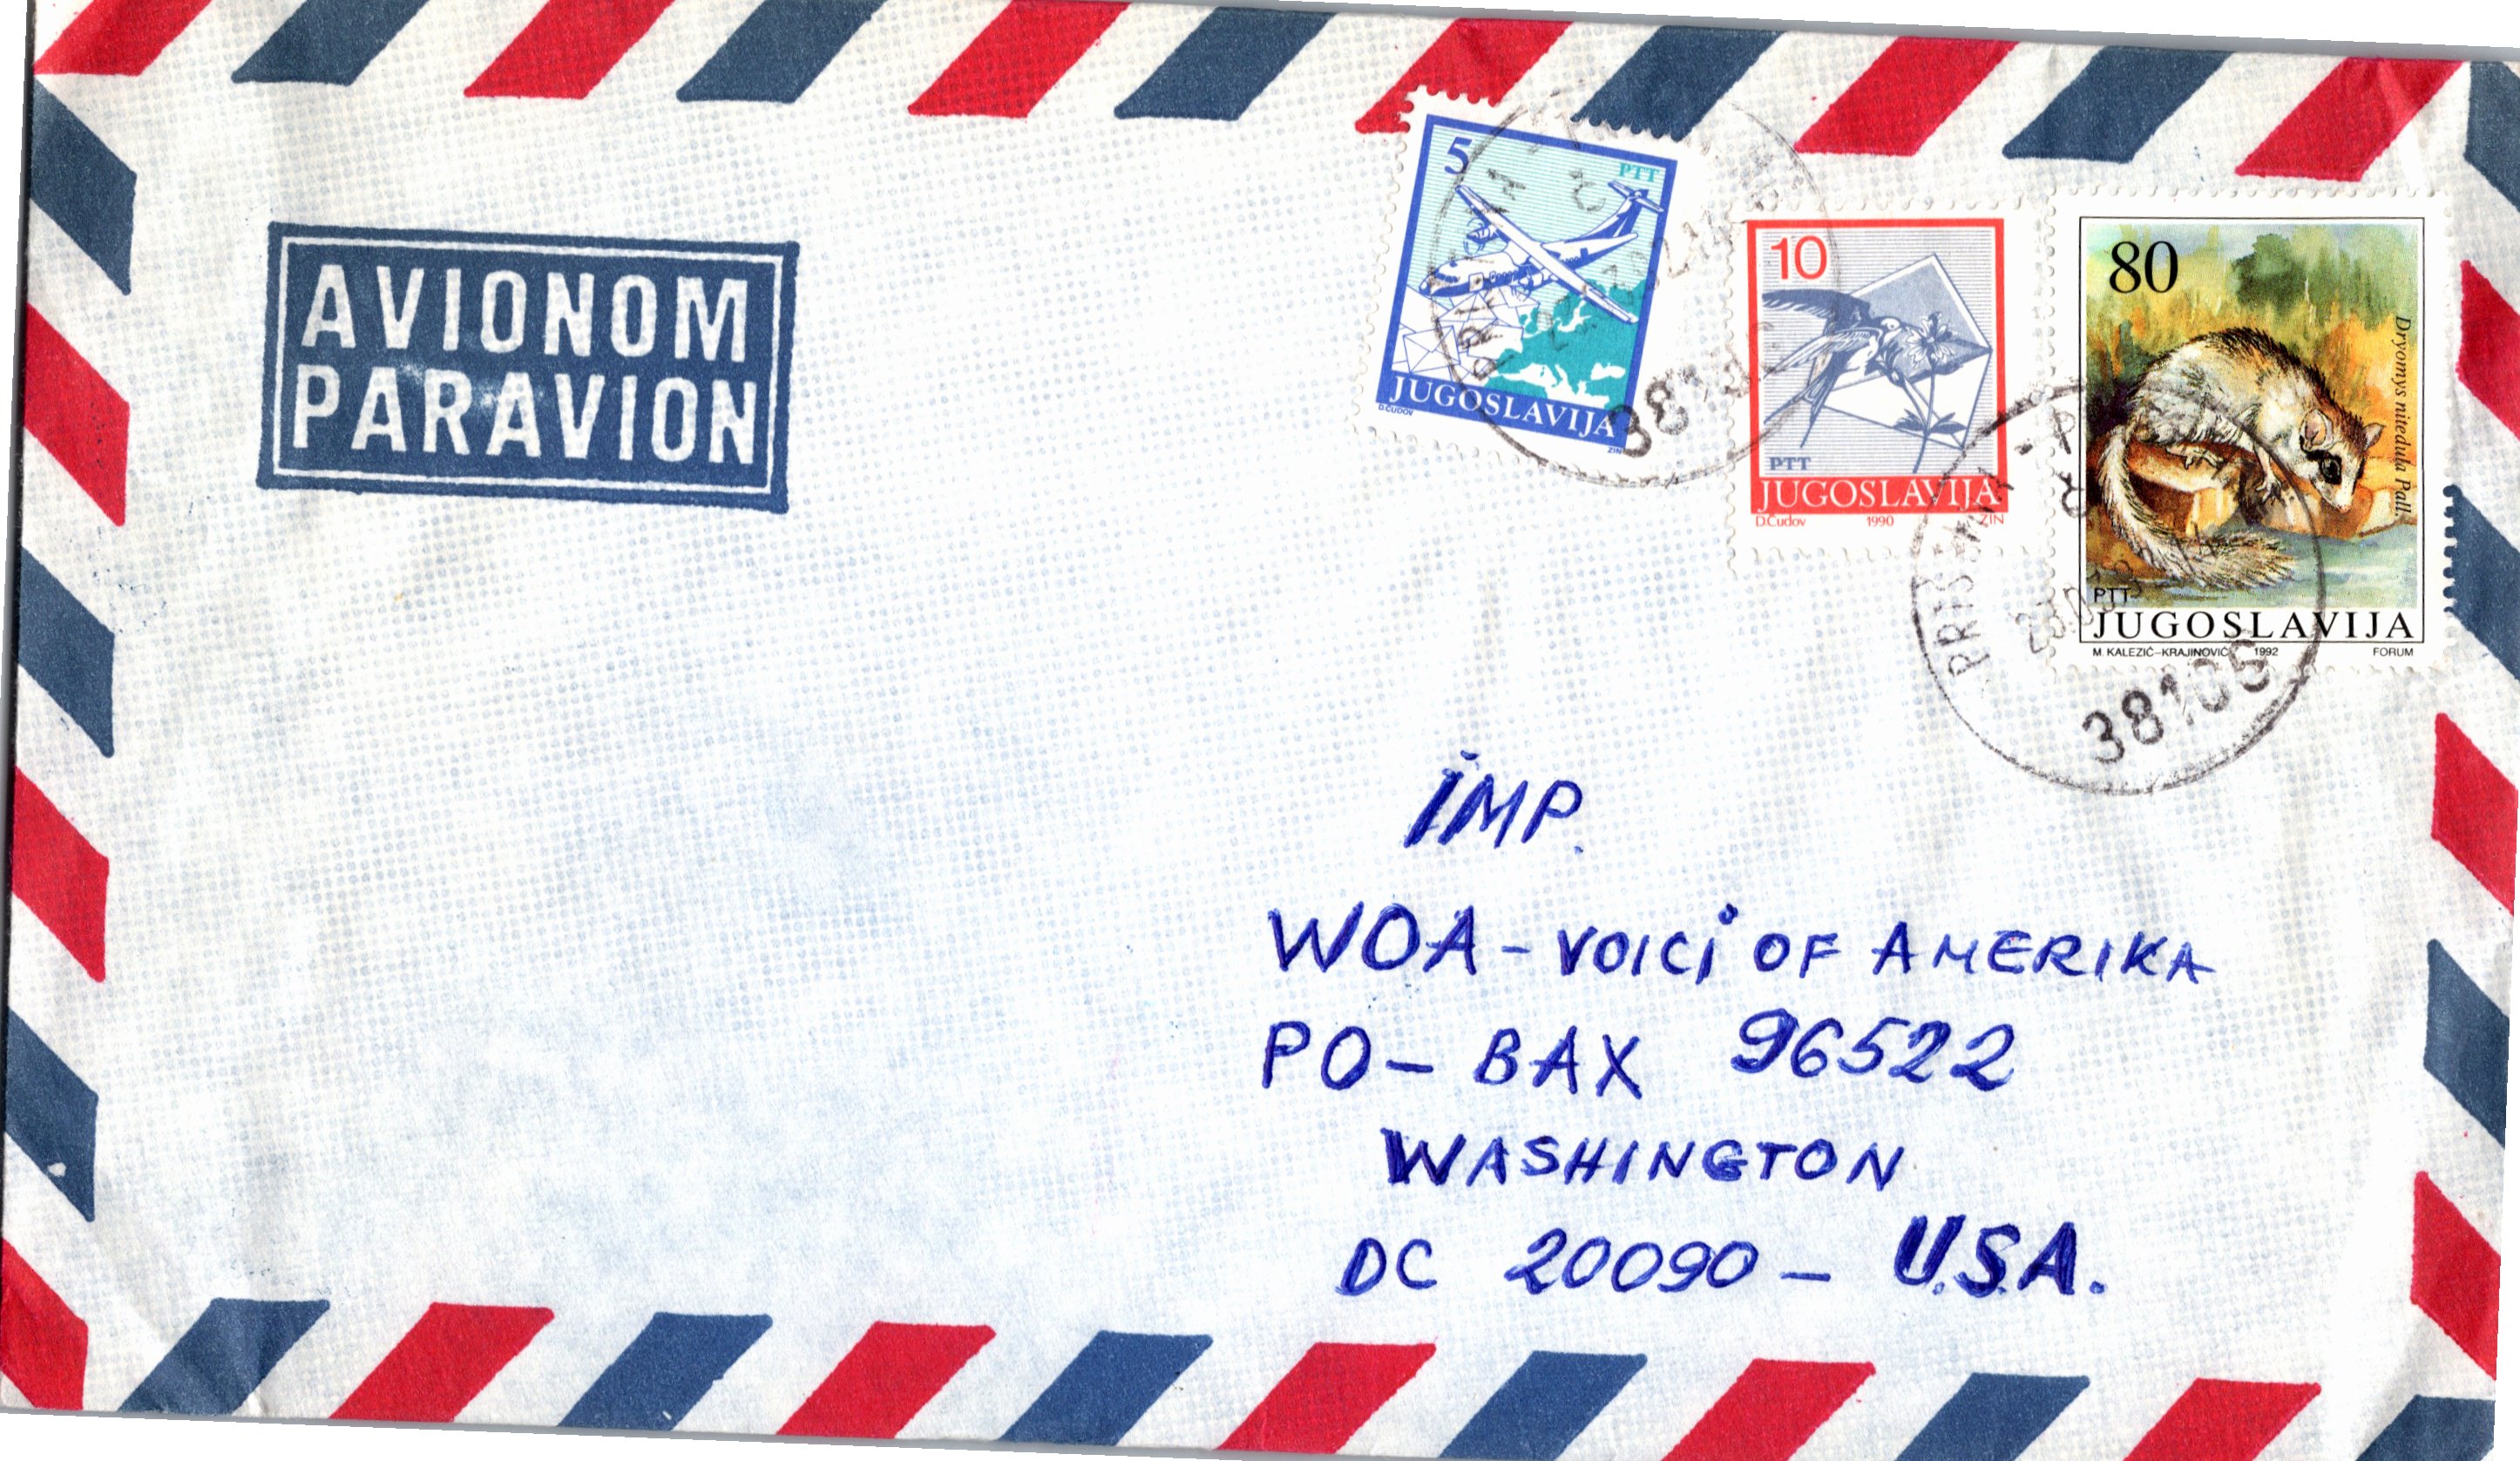 AVIONOM
PARAVION
5
PTT
JUGOSLAVIJA
D.ČUDOV
ZIN
10
PTT
JUGOSLAVIJA
D.Čudov 1990 ZIN
80
Dryomys nitedula Pall.
PTT
JUGOSLAVIJA
M. KALEZIĆ-KRAJINOVIĆ 1992 FORUM
38105
IMP.
WOA - VOICI OF AMERIKA
PO - BAX 96522
WASHINGTON
DC 20090 - U.S.A.